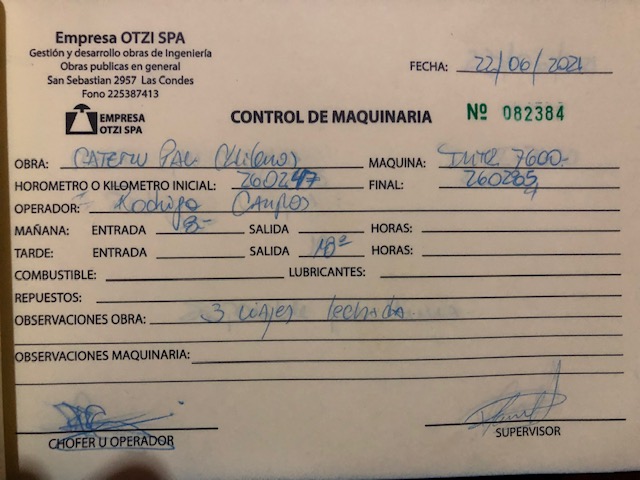 Empresa OTZI SPA
Gestión y desarrollo obras de Ingeniería
Obras publicas en general
San Sebastian 2957 Las Condes
Fono 225387413
FECHA: 22/06/2024
EMPRESA
OTZI SPA
CONTROL DE MAQUINARIA
Nº 082384
OBRA: MAQUINA: 7600
HOROMETRO O KILOMETRO INICIAL: 760247 FINAL: 760285
OPERADOR: Rodrigo Campos
MAÑANA: ENTRADA 8- SALIDA HORAS:
TARDE: ENTRADA SALIDA 18= HORAS:
COMBUSTIBLE: LUBRICANTES:
REPUESTOS:
OBSERVACIONES OBRA: 3 viajes
OBSERVACIONES MAQUINARIA:
CHOFER U OPERADOR
SUPERVISOR